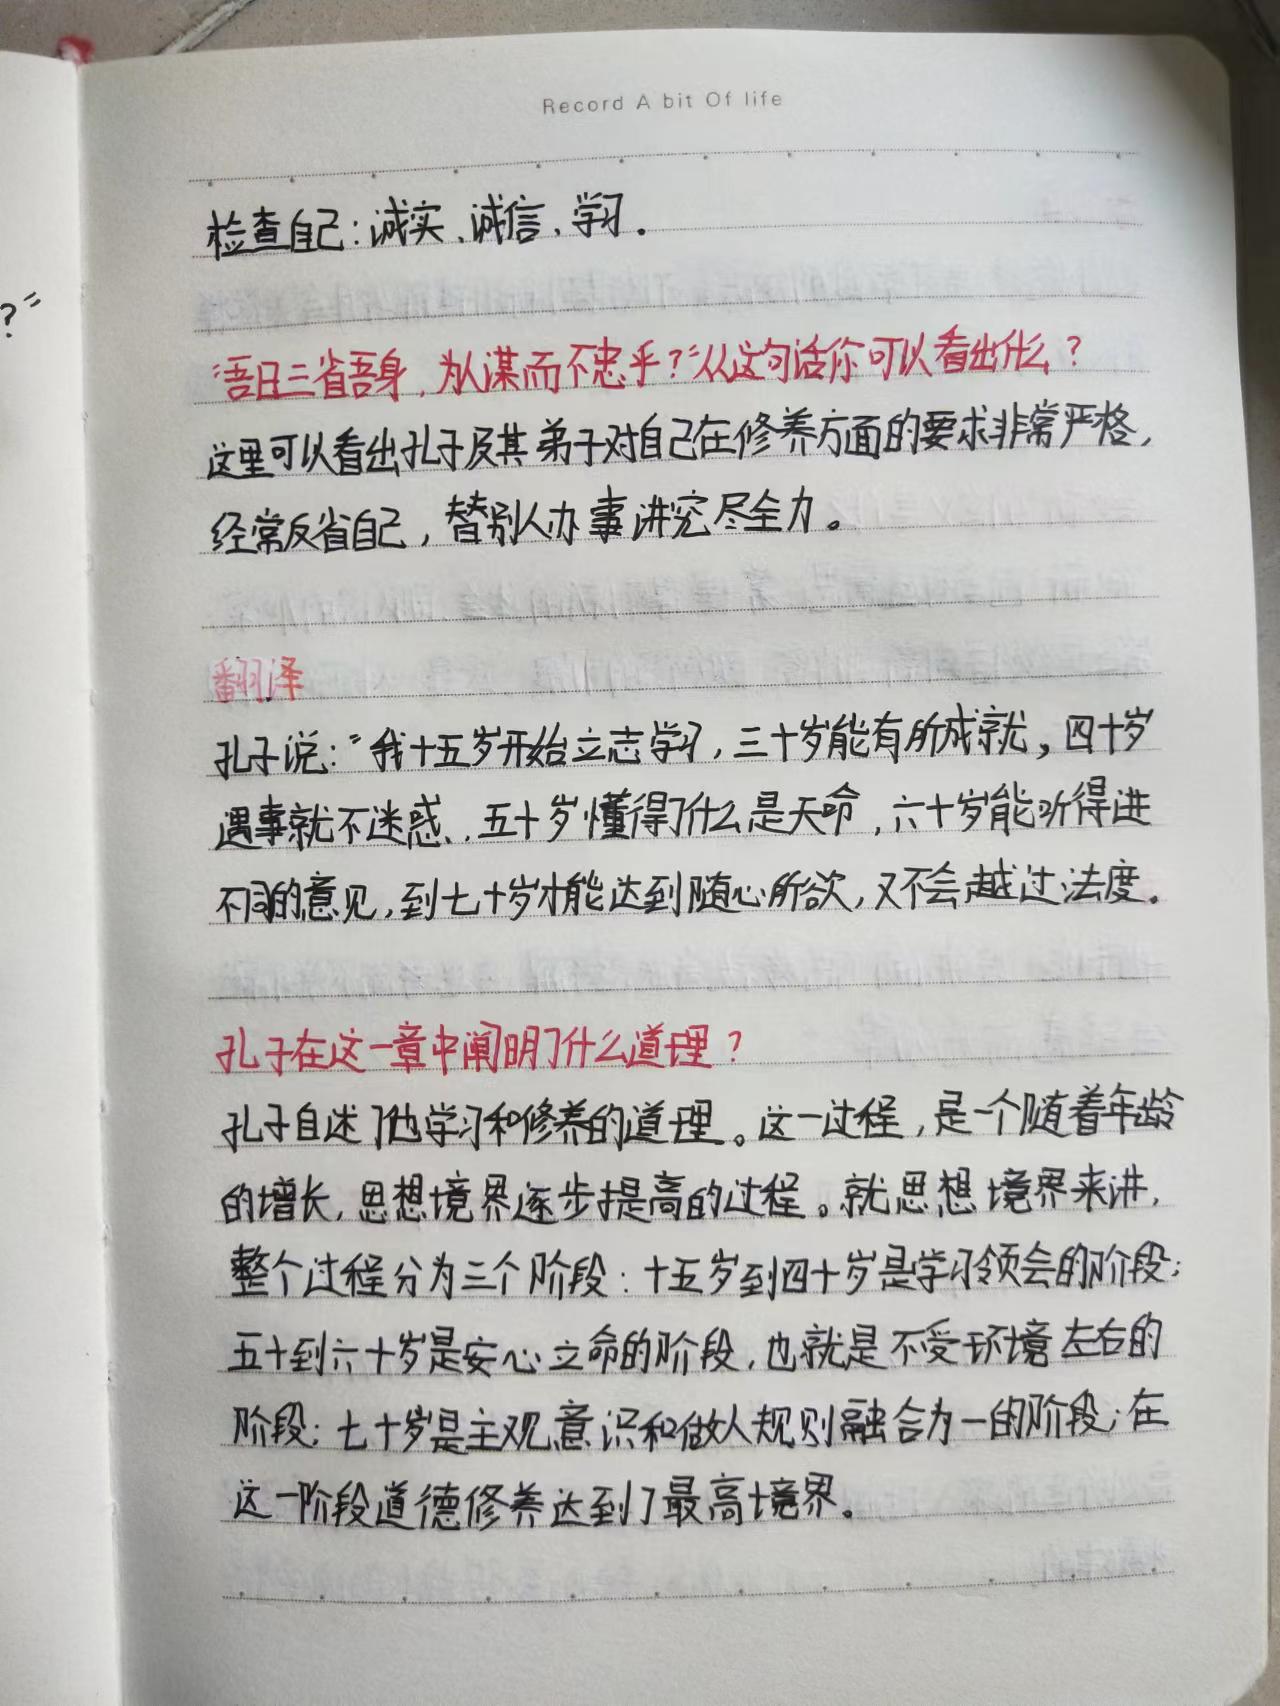 Record A bit Of life
?"
检查自己：诚实、诚信、学习.
"吾日三省吾身，为人谋而不忠乎？"从这句话你可以看出什么？
这里可以看出孔子及其弟子对自己在修养方面的要求非常严格，
经常反省自己，替别人办事讲究尽全力。
翻译
孔子说："我十五岁开始立志学习，三十岁能有所成就，四十岁
遇事就不迷惑，五十岁懂得了什么是天命，六十岁能听得进
不同的意见，到七十岁才能达到随心所欲，又不会越过法度.
孔子在这一章中阐明了什么道理？
孔子自述了他学习和修养的道理。这一过程，是一个随着年龄
的增长，思想境界逐步提高的过程。就思想境界来讲，
整个过程分为三个阶段：十五岁到四十岁是学习领会的阶段；
五十到六十岁是安心立命的阶段，也就是不受环境左右的
阶段；七十岁是主观意识和做人规则融合为一的阶段；在
这一阶段道德修养达到了最高境界。